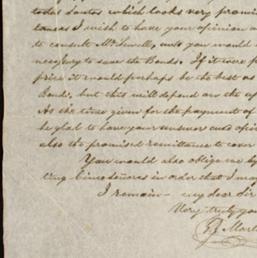 which looks very promi
I wish to have your opinion a
to consult Mr. Jewells, and you would
necessary to save the Bonds. If it were p
price it would perhaps be the best as
Bonds, but this will depend on the up
As the time given for the payment of
be glad to have your answer and opin
also the promised remittance to cover
You would also oblige me by
ting in order that I may
I remain — my dear Sir
Very truly you